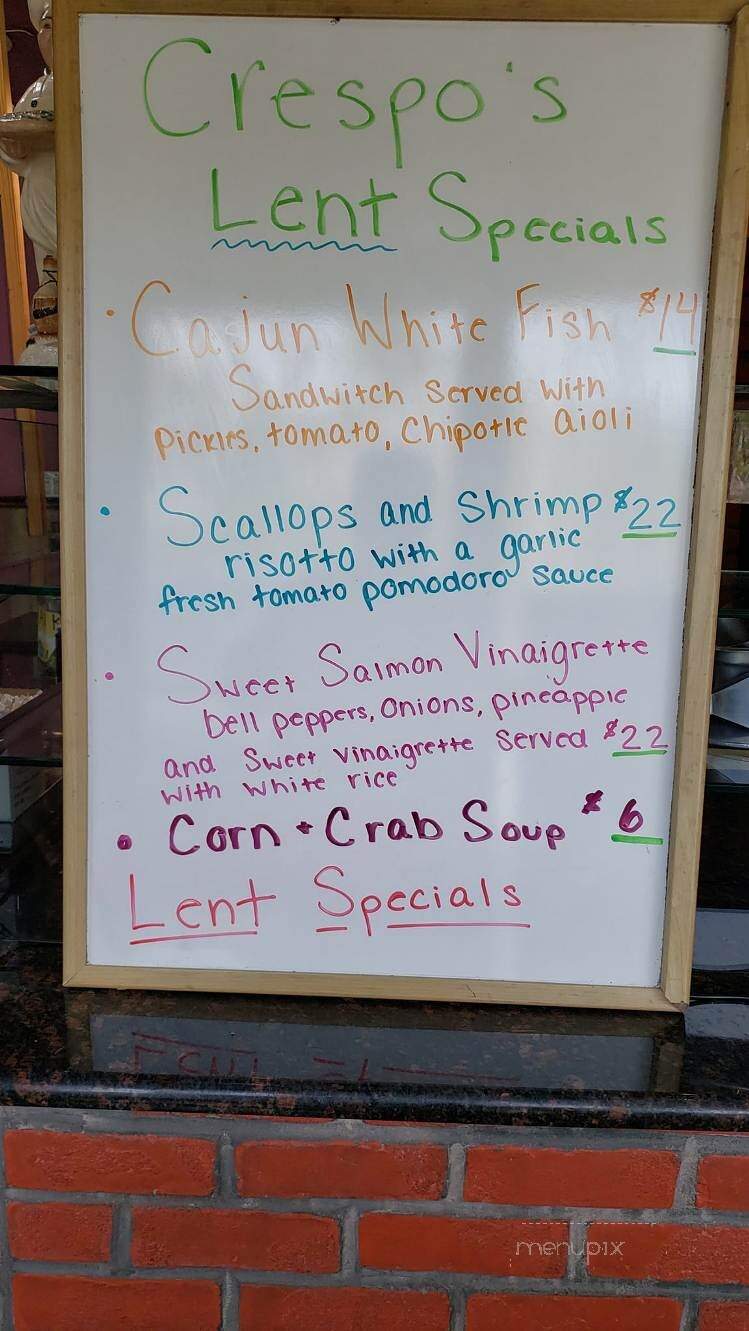 Crespo's
Lent Specials
• Cajun White Fish $14
Sandwitch Served with
pickles, tomato, Chipotle aioli
• Scallops and Shrimp $22
risotto with a garlic
fresh tomato pomodoro sauce
• Sweet Salmon Vinaigrette
bell peppers, onions, pineapple
and Sweet vinaigrette served $22
with white rice
• Corn + Crab Soup $6
Lent Specials
menupix